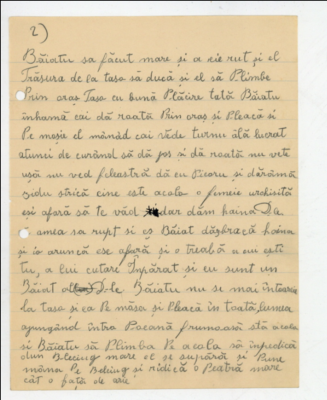 2)
Băiatu sa făcut mare și a cerut și el
Trăsura de la taso să ducă si el să Plimbe
Prin oraș Taso cu bună Plăcere tată Băiatu
înhamă cai dă roată Prin oraș si Pleacă si
Pe moșia el mănăd cai văde turnu ăla lucrat
atunci de curând să dă jos și dă roată nu vete
ușă nu ved feleastră dă cu Picoru și dărâmă
zidu strică cine este acolo o femeie urâsită
esi afară să te văd dar dăm haina Dle
a mea sa rupt si eș Băiat dăzbracă haina
si io aruncă ese afară și o treabă a cui ești
tu, a lui cutare Înpărat și eu sunt un
Băiat Dle Băiatu nu se mai întoarce
la taso și ea Pe măsa si Pleacă în toată lumea
ajungând întro Pocană frumoasă stă acolo
si Băiatu să Plimba Pe acola să împedică
dun Blecing mare el se supără și Pune
mâna Pe Belcing și ridică o Peatră mare
cât o fată de arie